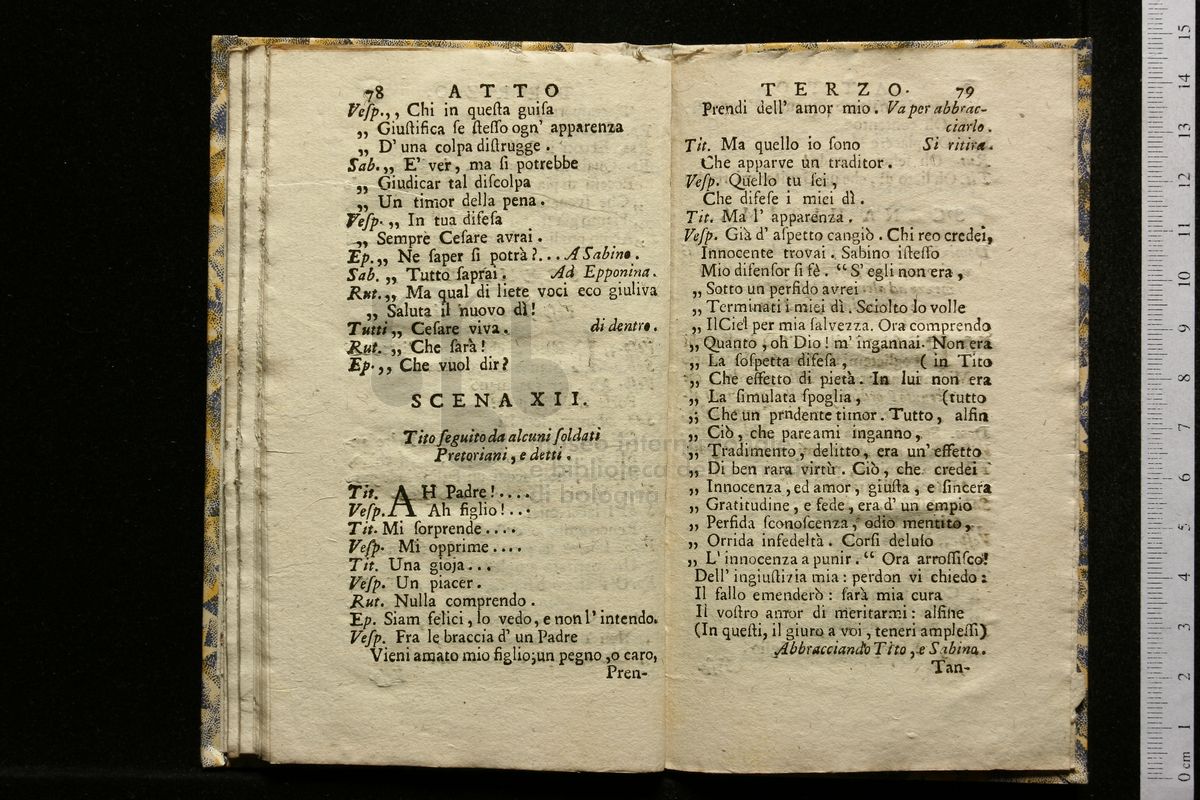 78 ATTO
Veſp.,, Chi in queſta guiſa
,, Giuſtifica ſe ſteſſo ogn' apparenza
,, D' una colpa diſtrugge.
Sab.,, E' ver, ma ſi potrebbe
,, Giudicar tal diſcolpa
,, Un timor della pena.
Veſp.,, In tua difeſa
,, Sempre Ceſare avrai.
Ep.,, Ne ſaper ſi potrà?... A Sabino.
Sab.,, Tutto ſaprai. Ad Epponina.
Rut.,, Ma qual di liete voci eco giuliva
,, Saluta il nuovo dì!
Tutti,, Ceſare viva. di dentro.
Rut.,, Che ſarà!
Ep.,, Che vuol dir?
SCENA XII.
Tito ſeguito da alcuni ſoldati
Pretoriani, e detti.
Tit. AH Padre!....
Veſp. Ah figlio!...
Tit. Mi ſorprende....
Veſp. Mi opprime....
Tit. Una gioja...
Veſp. Un piacer.
Rut. Nulla comprendo.
Ep. Siam felici, lo vedo, e non l' intendo.
Veſp. Fra le braccia d' un Padre
Vieni amato mio figlio; un pegno, o caro,
Pren-
TERZO. 79
Prendi dell' amor mio. Va per abbrac-
ciarlo.
Tit. Ma quello io ſono Si ritira.
Che apparve un traditor.
Veſp. Quello tu ſei,
Che difeſe i miei dì.
Tit. Ma l' apparenza.
Veſp. Già d' aſpetto cangiò. Chi reo credei,
Innocente trovai. Sabino iſteſſo
Mio difenſor ſi fè. “ S' egli non era,
,, Sotto un perfido avrei
,, Terminati i miei dì. Sciolto lo volle
,, Il Ciel per mia ſalvezza. Ora comprendo
,, Quanto, oh Dio! m' ingannai. Non era
,, La ſoſpetta difeſa, ( in Tito
,, Che effetto di pietà. In lui non era
,, La ſimulata ſpoglia, (tutto
,, Che un prndente timor. Tutto, alfin
,, Ciò, che pareami inganno,
,, Tradimento, delitto, era un' effetto
,, Di ben rara virtù. Ciò, che credei
,, Innocenza, ed amor, giuſta, e ſincera
,, Gratitudine, e fede, era d' un empio
,, Perfida ſconoſcenza, odio mentito,
,, Orrida infedeltà. Corſi deluſo
,, L' innocenza a punir. “ Ora arroſſiſco!
Dell' ingiuſtizia mia: perdon vi chiedo:
Il fallo emenderò: ſarà mia cura
Il voſtro amor di meritarmi: alfine
(In queſti, il giuro a voi, teneri ampleſſi)
Abbracciando Tito, e Sabino.
Tan-